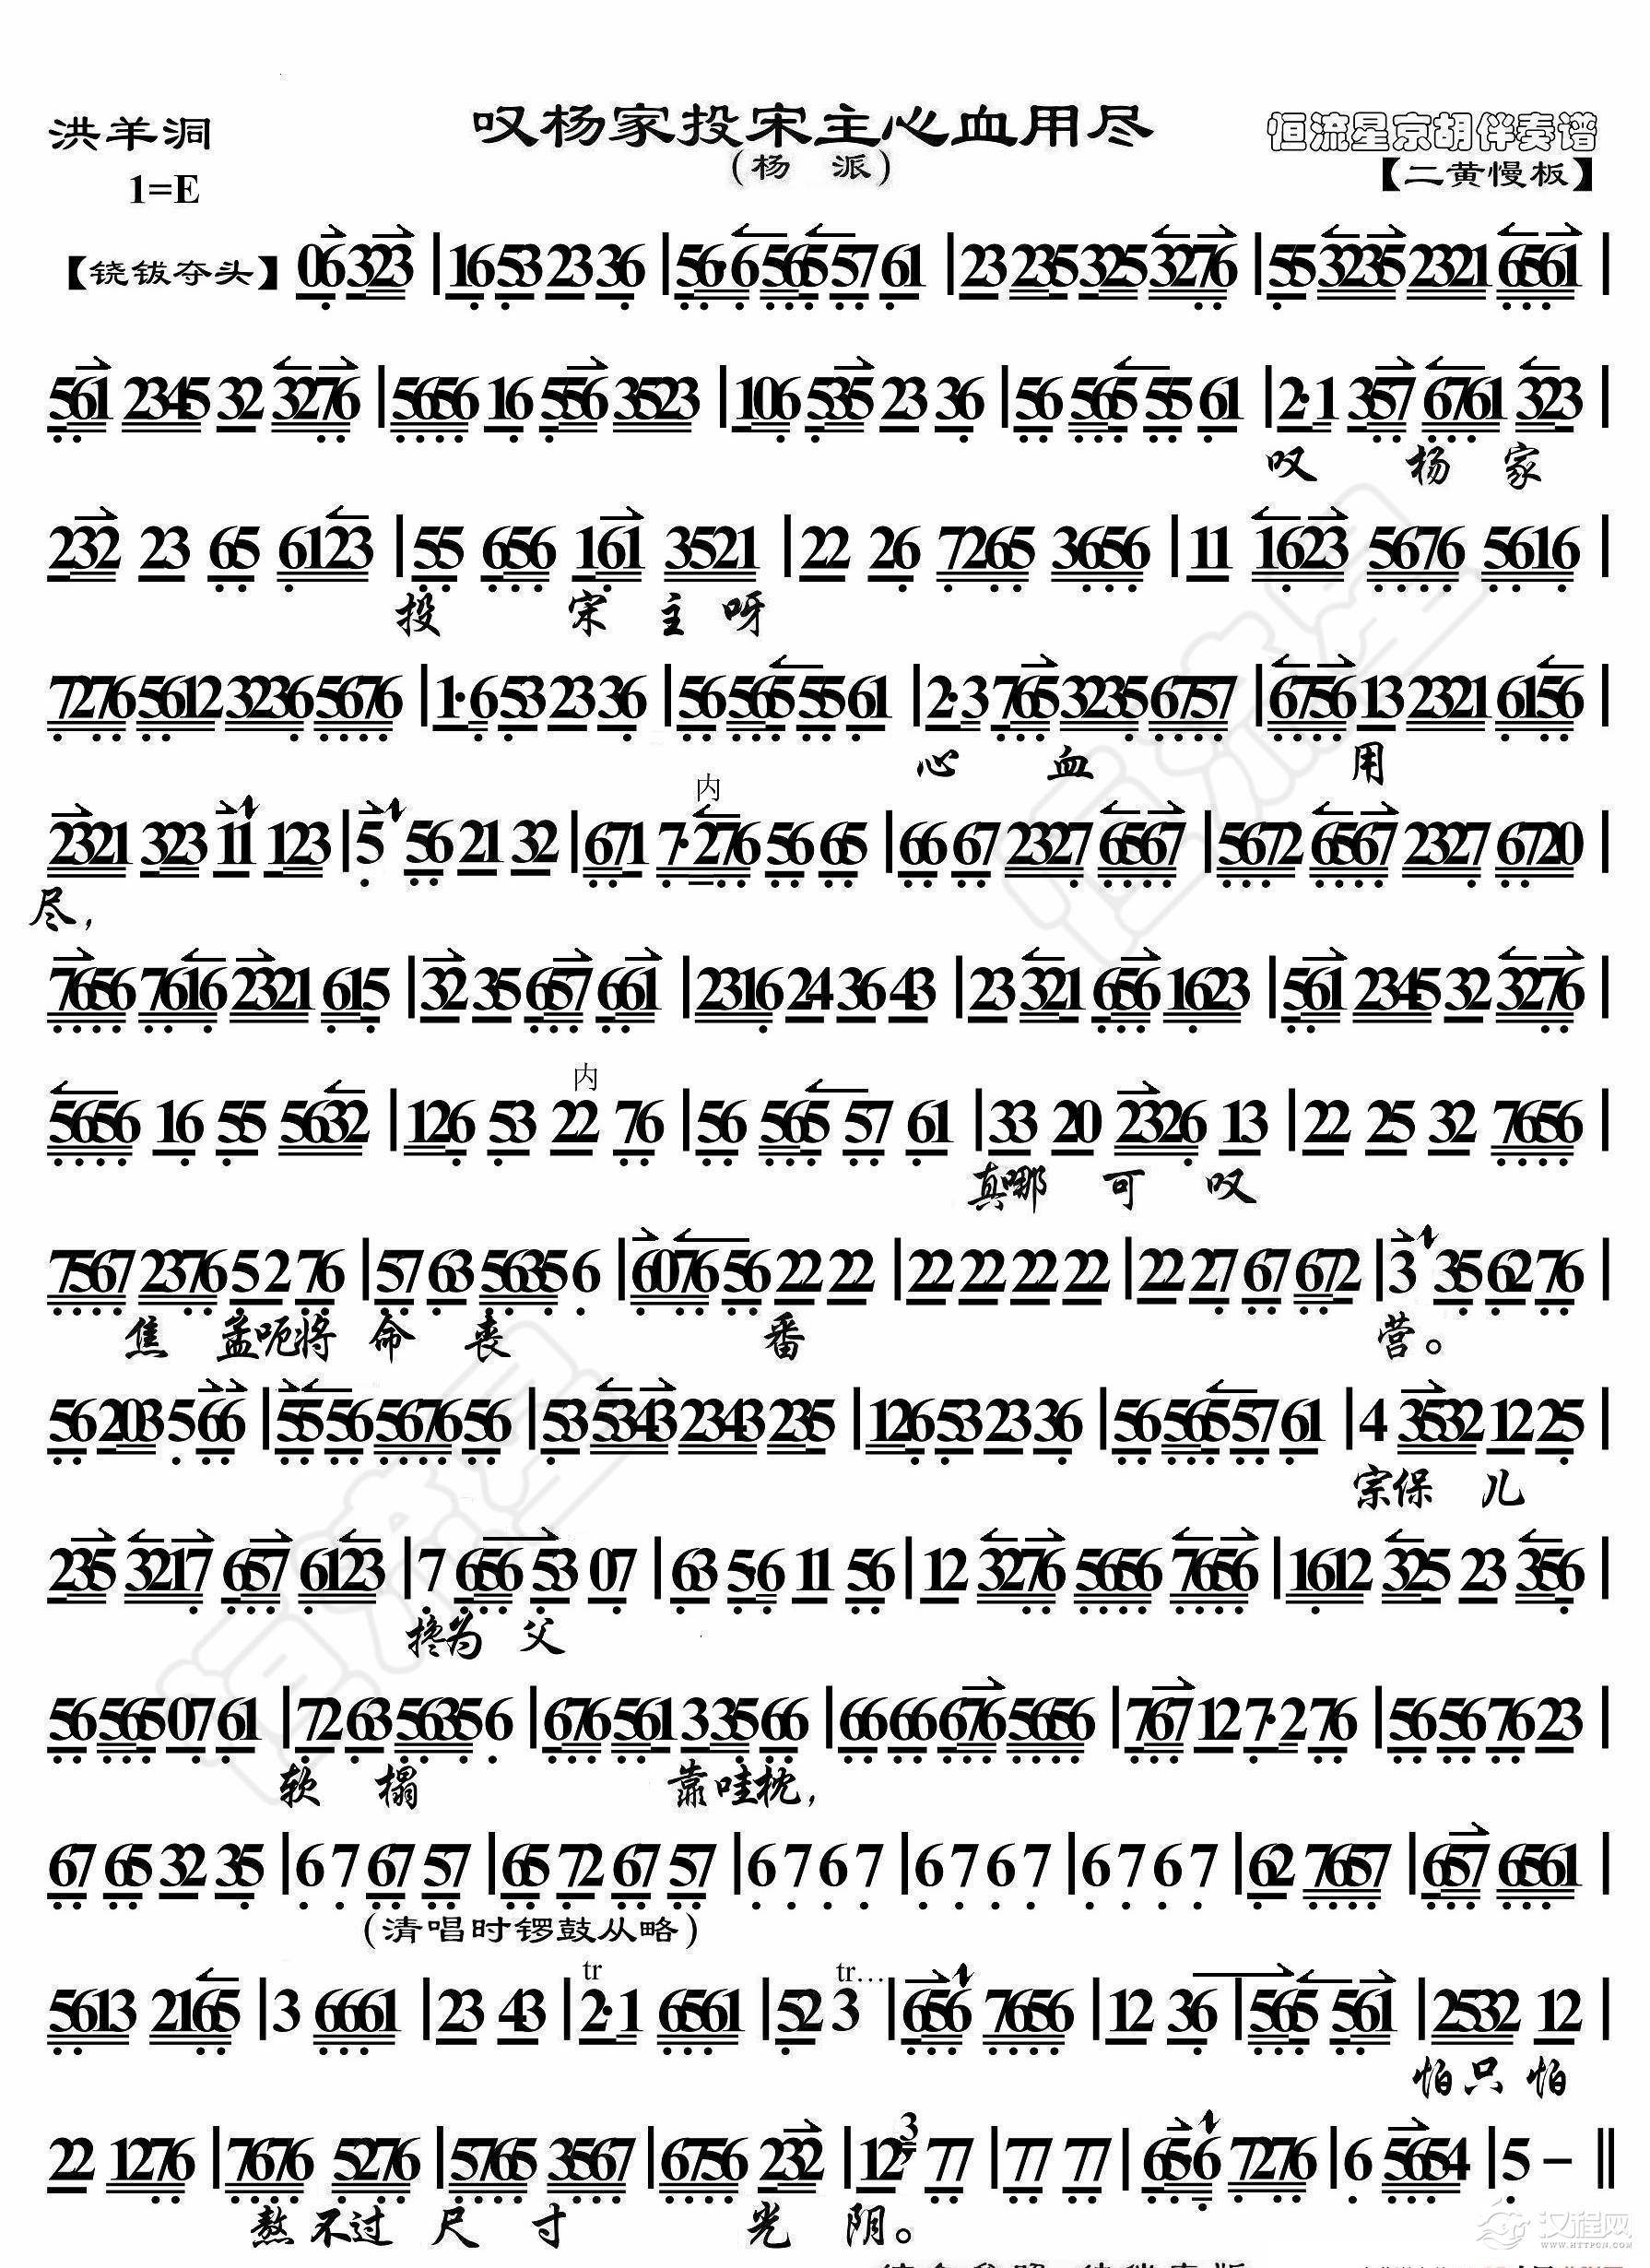 洪羊洞 叹杨家投宋主心血用尽 恒流星京胡伴奏谱
(杨 派) 【二黄慢板】
1=E
【铙钹夺头】 06323 | 16532336 | 56·65655761 | 232353253276 | 55323523216561 |
561 2345 32 3276 | 5656 16 556 3523 | 106 535 23 36 | 56 565 55 61 | 2·1 357 6761 323 |
叹 杨 家
232 23 65 6123 | 55 656 161 3521 | 22 26 7265 3656 | 11 1623 5676 5616 |
投 宋 主 呀
7276561232365676 | 1·6532336 | 565655561 | 2·376532356757 | 67561323216156 |
心 血 用
内
2321 323 11 123 | 5 56 21 32 | 671 7·276 56 65 | 66 67 2327 6567 | 5672 6567 2327 6720 |
尽,
765676162321615 | 3235657661 | 2316243643 | 233216561623 | 5612345323276 |
内
5656 16 55 5632 | 126 53 22 76 | 56 565 57 61 | 33 20 2326 13 | 22 25 32 7656 |
真哪 可 叹
756723765276 | 576356356 | 6076562222 | 22222222 | 222767672 | 3356276 |
焦 孟呃将 命 丧 番 营。
56203566 | 5556567656 | 5353432343235 | 126532336 | 565655761 | 435321225 |
宗保 儿
235 3217 657 6123 | 7 656 53 07 | 63 5·6 11 56 | 12 3276 5656 7656 | 1612 325 23 356 |
搀为 父
565650761 | 726356356 | 676561333566 | 66666765656 | 767127·276 | 56567623 |
软 榻 靠哇枕,
67 65 32 35 | 6 7 67 57 | 65 72 67 57 | 6 7 6 7 | 6 7 6 7 | 6 7 6 7 | 62 7657 | 657 6561 |
(清唱时锣鼓从略)
tr tr…
5613 2165 | 3 6661 | 23 43 | 2·1 6561 | 52 3 | 656 7656 | 12 36 | 565 561 | 2532 12 |
怕只怕
3
22 1276 | 7676 5276 | 5765 3567 | 6756 232 | 12 77 | 77 77 | 65·6 7276 | 6 5654 | 5 – ‖
熬 不过 尺 寸 光 阴。
汉程网
HTTPCN.COM